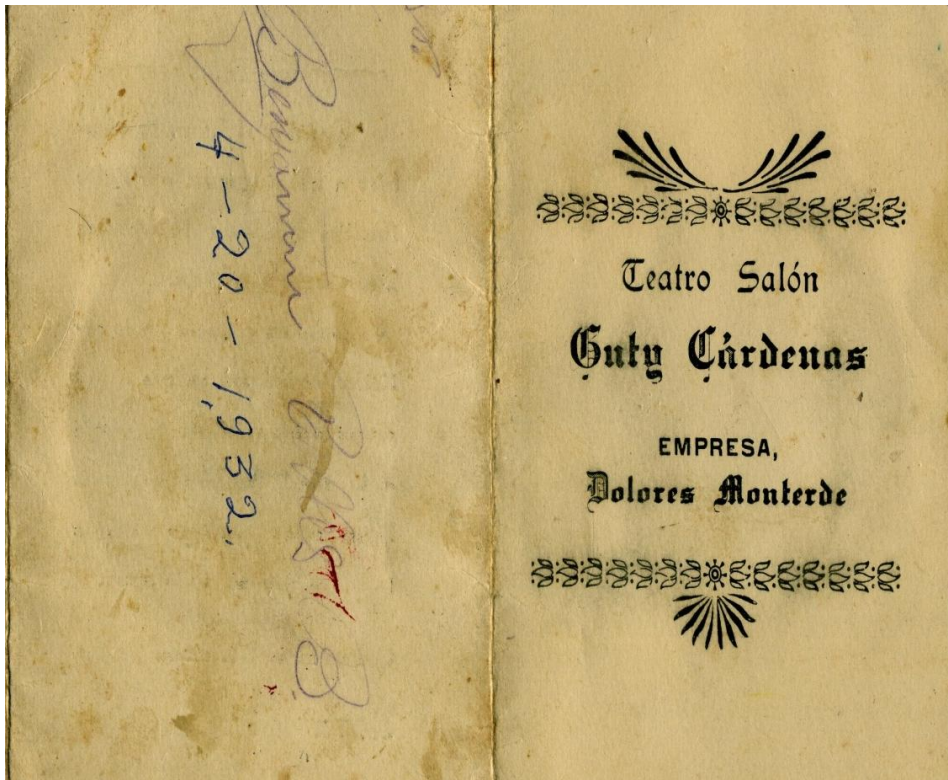 Benjamin
4-20-1,932.
Teatro Salón
Guty Cárdenas
EMPRESA,
Dolores Monterde